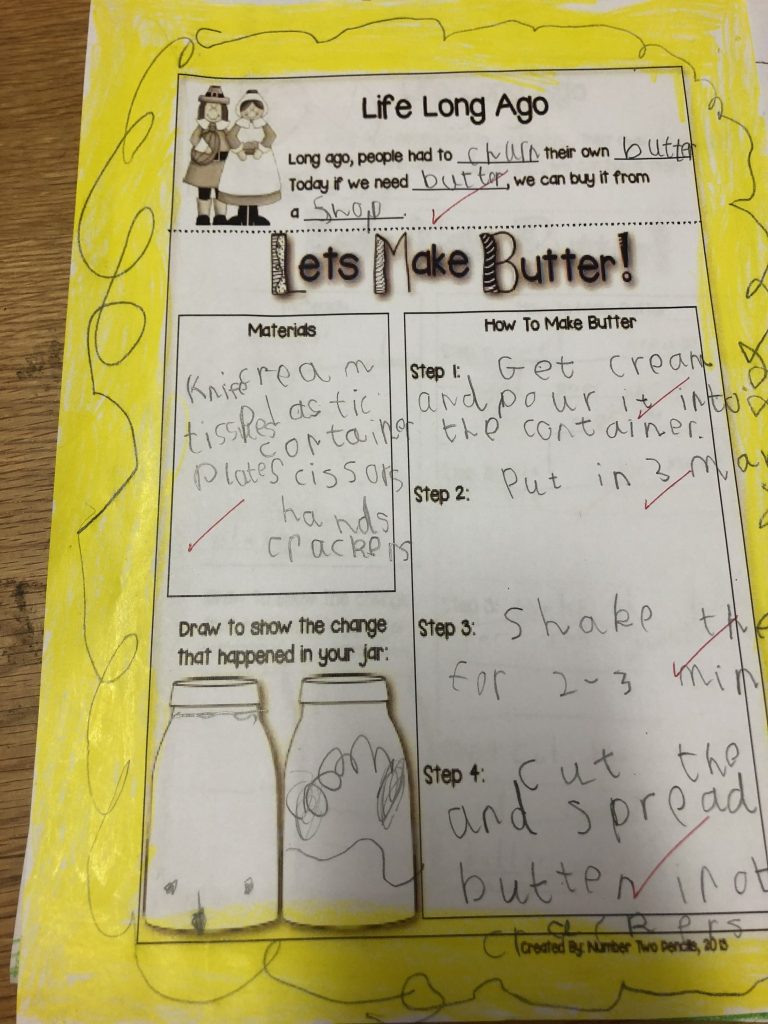 Life Long Ago
Long ago, people had to churn their own butter
Today if we need butter, we can buy it from
a Shop.
Lets Make Butter!
Materials
Knife cream
tissues Plastic
container
Plate scissors
hands
crackers
Draw to show the change
that happened in your jar:
How To Make Butter
Step 1: Get cream
and pour it into
the container.
Step 2: Put in 3 mar
Step 3: Shake the
for 2-3 min
Step 4: cut the
and spread
butter inot
crackers
Created By: Number Two Pencils, 2013